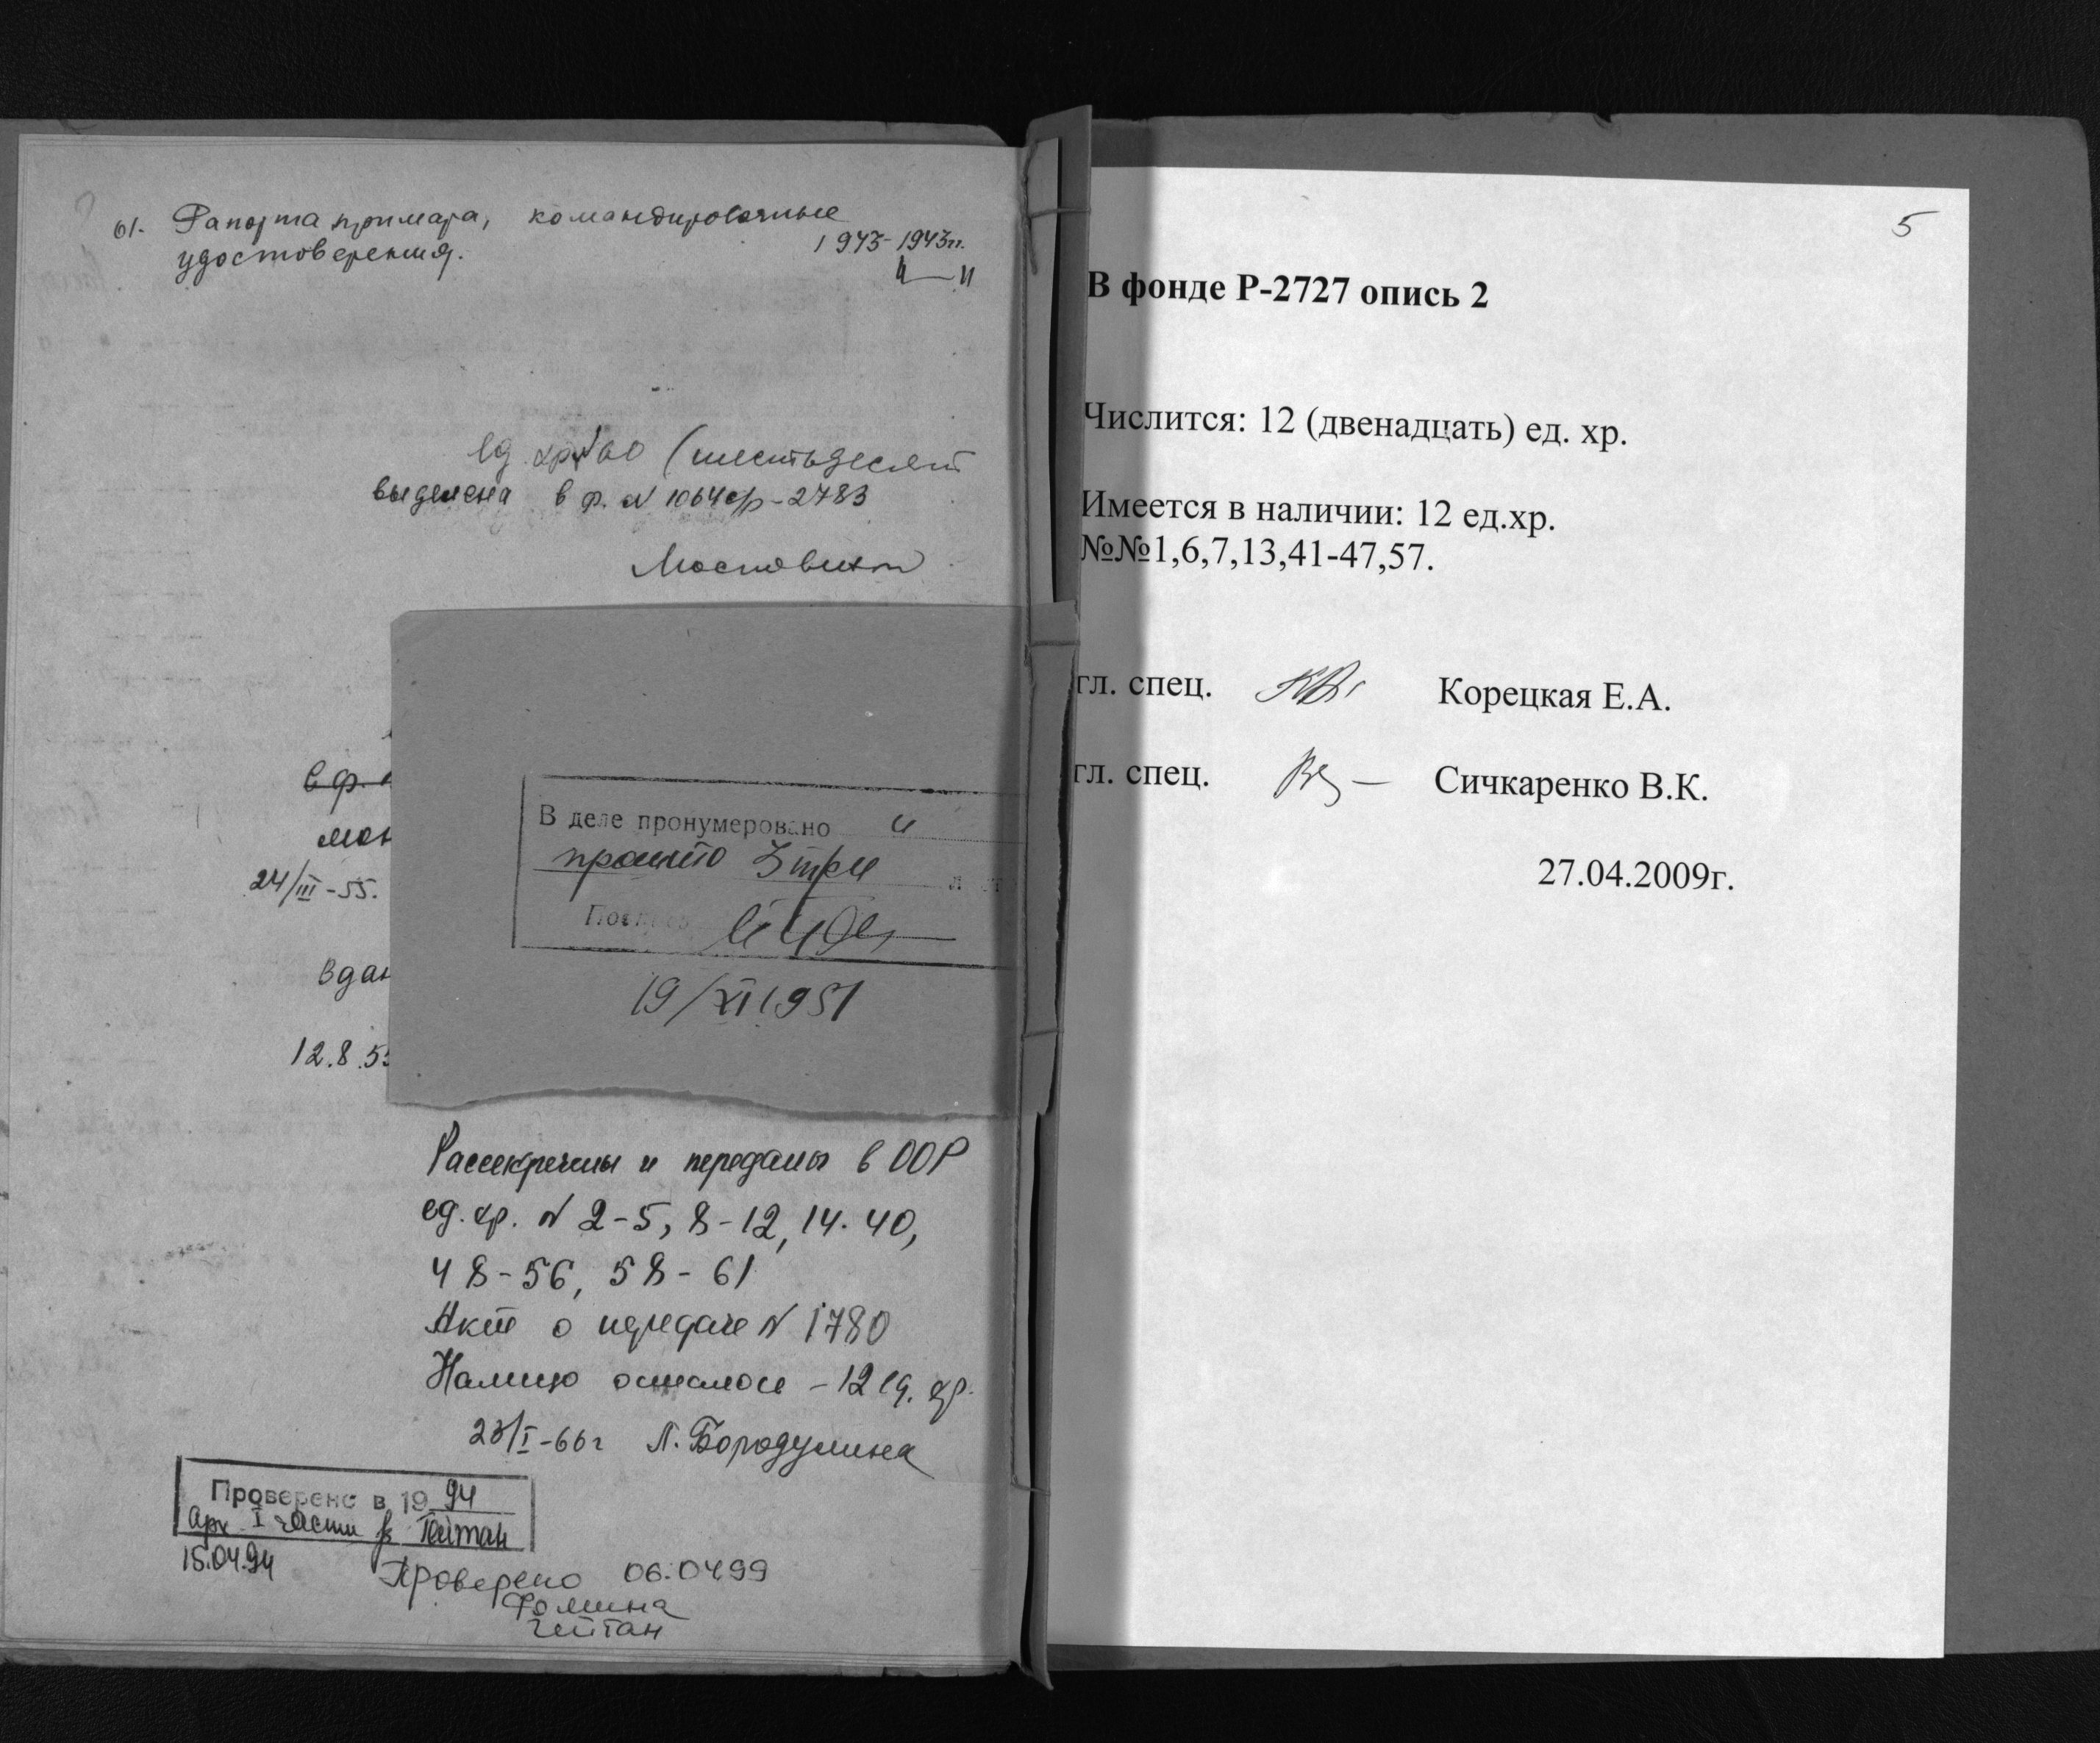 61. Рапорта примара, командировочные
удостоверения. 1943-1943гг.
ед. хр. №60 (шестьдесят
выделена в ф. № 1064 с/р-2783
в ф.
24/III-55.
12.8.5
В деле пронумеровано и
прошито 3 три
19/XI 1951
Рассекречены и переданы в ООР
ед. хр. № 2-5, 8-12, 14-40,
48-56, 58-61
Акт о передаче № 1780
Налицо осталось - 12 ед. хр.
23/I-66г Л. Бородулина
Проверено в 1994
Арх I части Гейтан
15.04.94
Проверено 06.04.99
Фомина
Гейтан
5
В фонде Р-2727 опись 2
Числится: 12 (двенадцать) ед. хр.
Имеется в наличии: 12 ед.хр.
№№1,6,7,13,41-47,57.
гл. спец. Корецкая Е.А.
гл. спец. Сичкаренко В.К.
27.04.2009г.